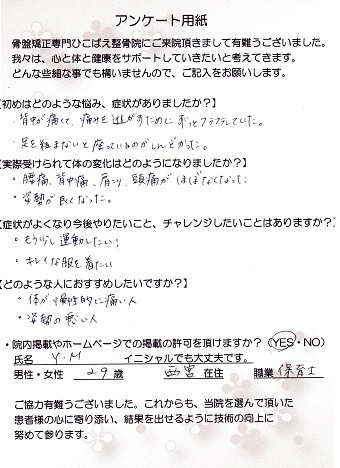 アンケート用紙
骨盤矯正専門ひこばえ整骨院にご来院頂きまして有難うございました。
我々は、心と体と健康をサポートしていきたいと考えてきます。
どんな些細な事でも構いませんので、ご記入をお願いします。
【初めはどのような悩み、症状がありましたか？】
・背中が痛くて、痛みを逃がすためにずっとフラフラしていた。
・足を組まないと座っているのがしんどかった。
【実際受けられて体の変化はどのようになりましたか？】
・腰痛、背中痛、肩こり、頭痛がほぼなくなった
・姿勢が良くなった。
【症状がよくなり今後やりたいこと、チャレンジしたいことはありますか？】
・もう少し運動したい！
・キレイな服を着たい
【どのような人におすすめしたいですか？】
・体が慢性的に痛い人
・姿勢の悪い人
・院内掲載やホームページでの掲載の許可を頂けますか？（YES・NO）
氏名 Y.M イニシャルでも大丈夫です。
男性・女性 29歳 西宮 在住 職業 保育士
ご協力有難うございました。これからも、当院を選んで頂いた
患者様の心に寄り添い、結果を出せるように技術の向上に
努めて参ります。